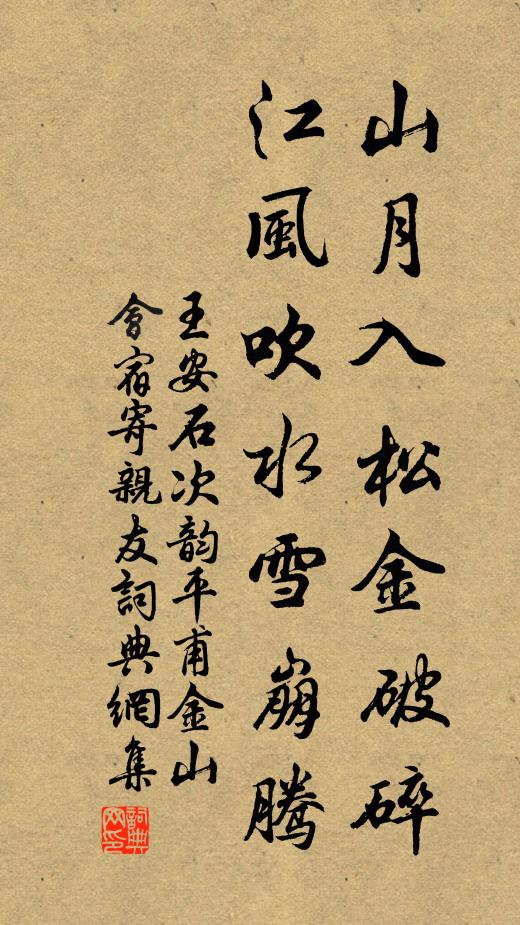 山月入松金破碎
江風吹水雪崩騰
王安石次韵平甫金山
會宿寄親友詞典網集
詞典
网印